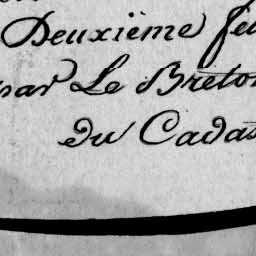 Deuxième
par Le Breton
du Cadas